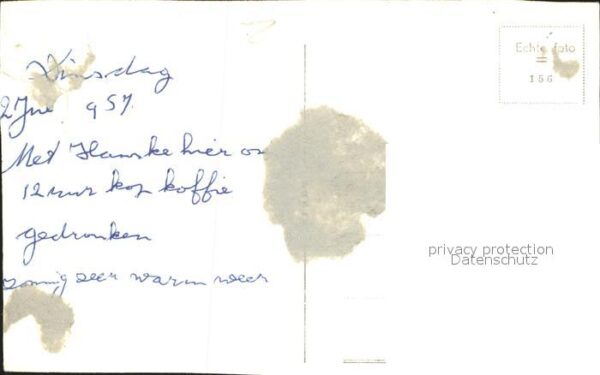 Dinsdag
2 Jul 957.
Met Hanneke hier om
12 uur kop koffie
gedronken
zonnig zeer warm weer
Echte foto
156
privacy protection
Datenschutz